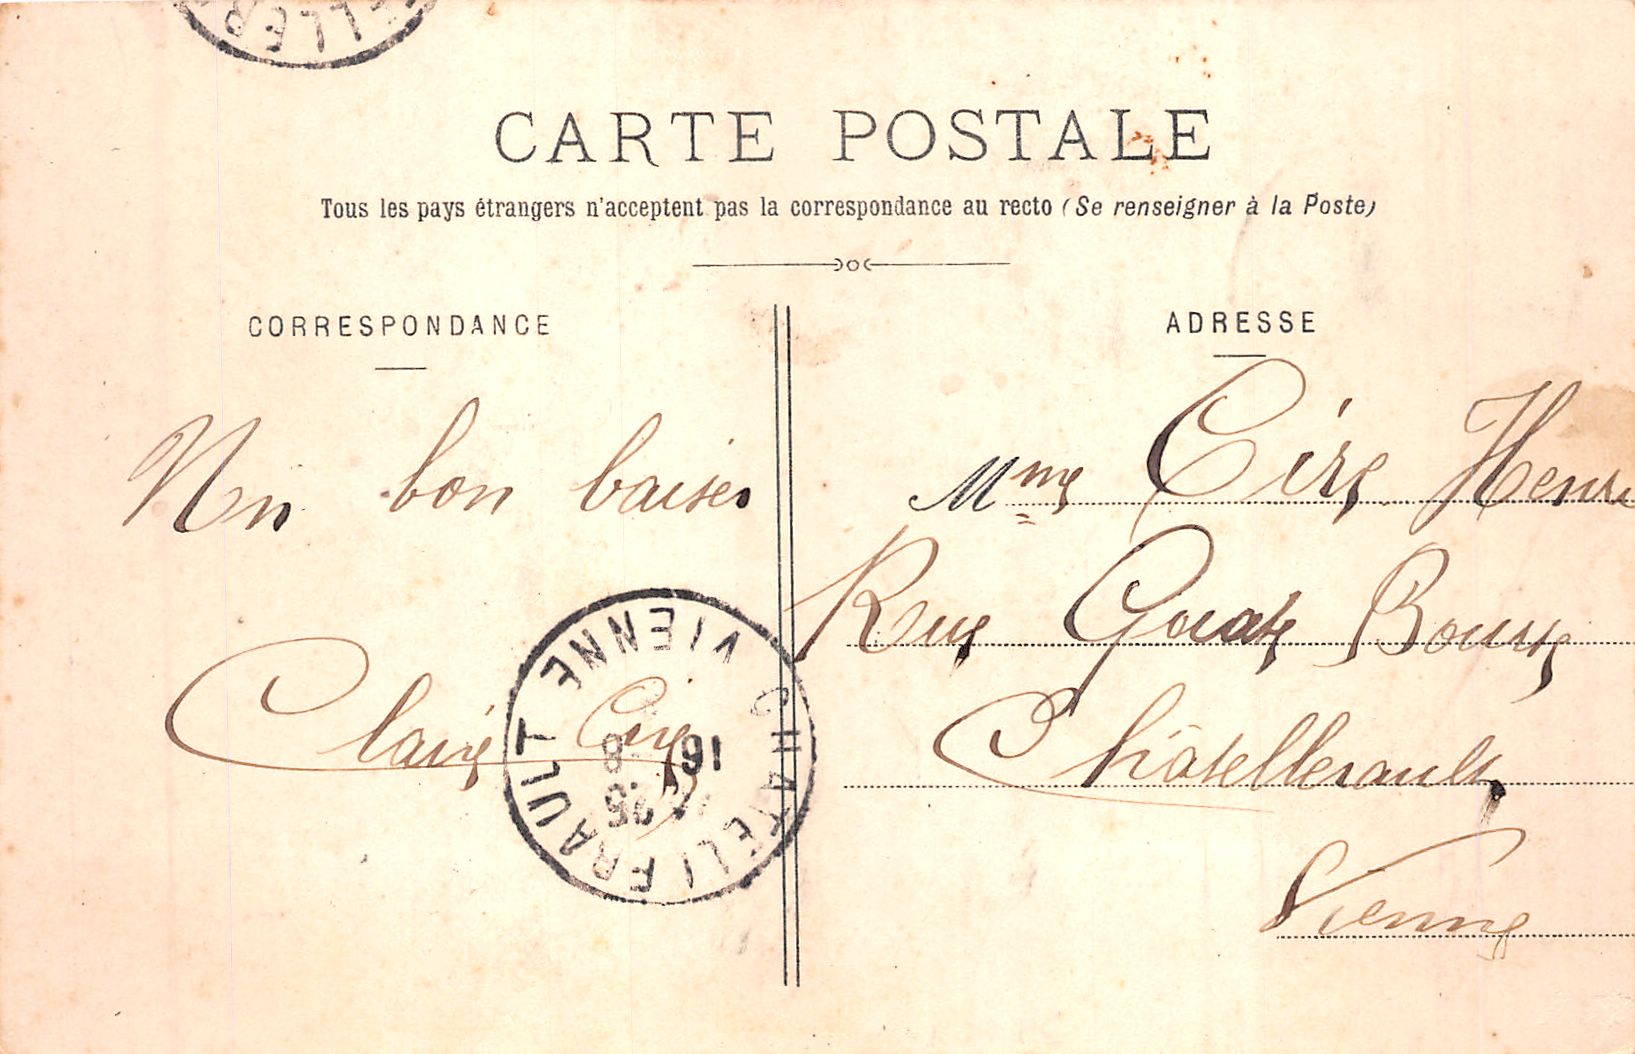 ELLER
CARTE POSTALE
Tous les pays étrangers n'acceptent pas la correspondance au recto (Se renseigner à la Poste)
CORRESPONDANCE
ADRESSE
Un bon baiser
Claire Cire
Mme Cire Henri
Rue Gouate Bourse
Châtellerault
Vienne
CHATELLERAULT VIENNE
16
25 -8